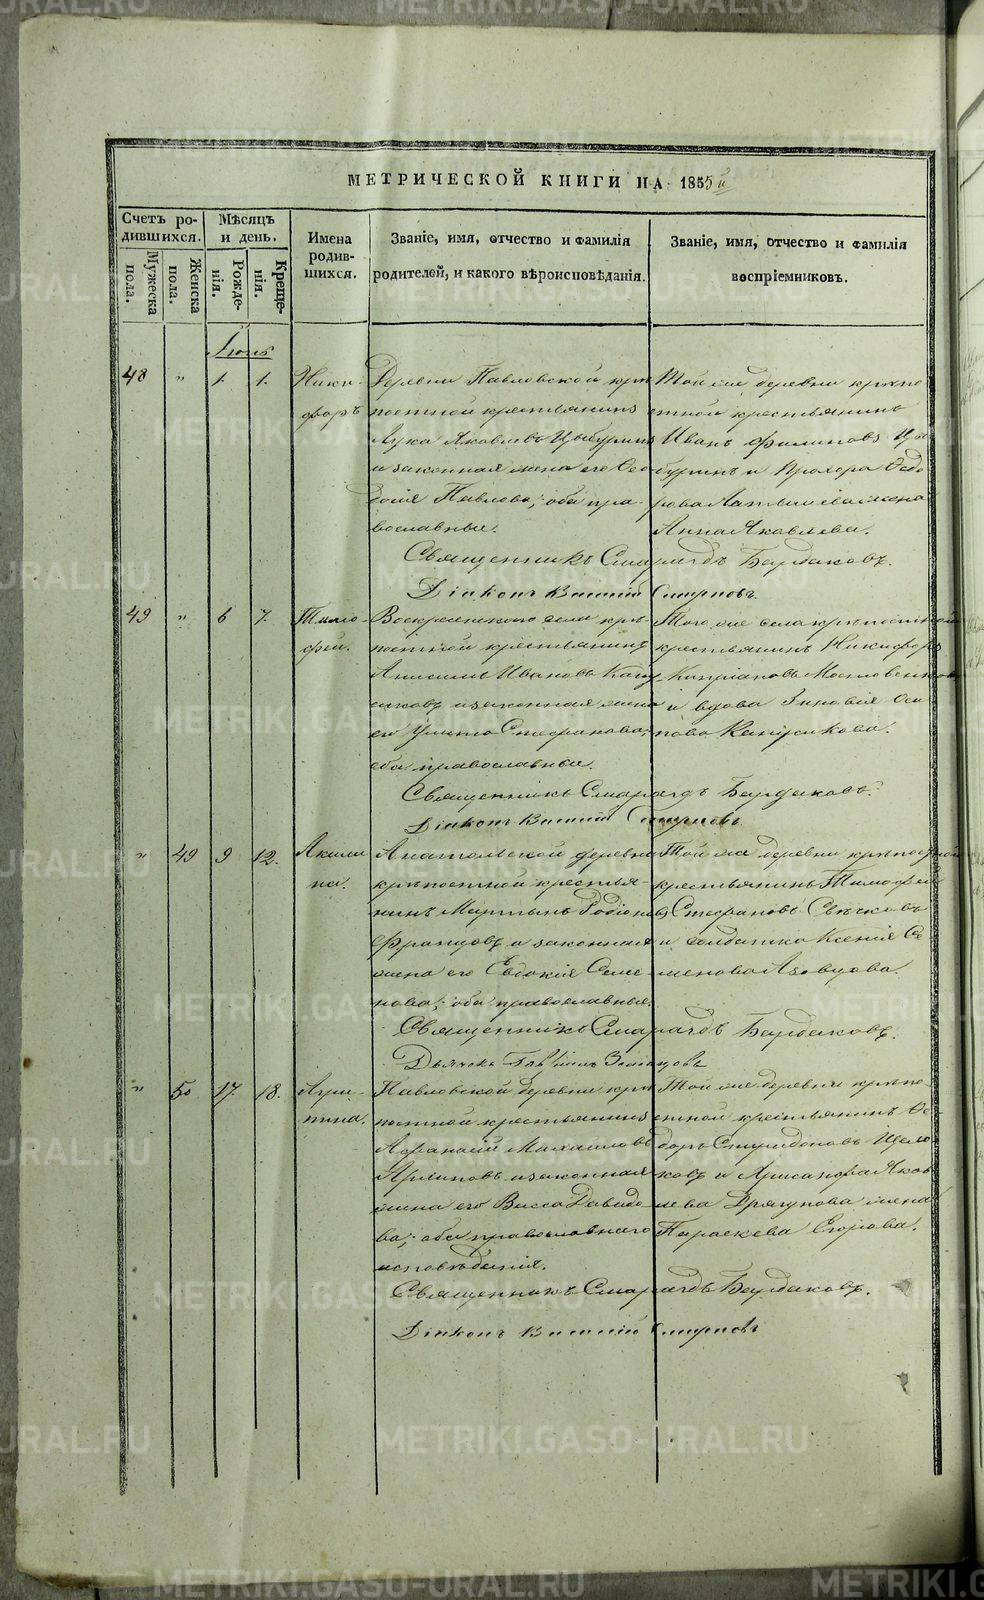 МЕТРИЧЕСКОЙ КНИГИ НА 1855 й
Счетъ ро-
дившихся.
Мужеска
пола.
Женска
пола.
Мѣсяцъ
и день.
Рожде-
нія.
Креще-
нія.
Имена
родив-
шихся.
Званіе, имя, отчество и фамилія
родителей, и какого вѣроисповѣданія.
Званіе, имя, отчество и фамилія
воспріемниковъ.
48 " 1. 1. Ники-
форъ
Деревни Павловской крѣ-
постной крестьянинъ
Лука Яковлевъ Цыбуринъ
и законная жена его Ѳео-
досія Павлова; оба пра-
вославные.
Той же деревни крѣпо-
стной крестьянинъ
Иванъ Филиповъ Цы-
буринъ и Прохора Ѳедо-
рова жена
Анна Яковлева.
Священникъ Смарагдъ Бардаковъ.
Діаконъ Смирновъ.
49 " 6 7. Тимо-
фей.
Воскресенскаго села крѣ-
постной крестьянинъ
Анисимъ Ивановъ
и законная жена
его Улита Стефанова;
оба православные.
Того же села крѣпостной
крестьянинъ Никифоръ
Кипріановъ
и вдова Зиновія Оси-
пова
Священникъ Смарагдъ Бардаковъ.
Діаконъ Смирновъ
" 49 9 12. Акили-
на.
Анатольской деревни
крѣпостной крестья-
нинъ Мартынъ Родіоновъ
Францовъ и законная
жена его Евдокія Семе-
нова; оба православныя.
Той же деревни крѣпостной
крестьянинъ Тимофей
Стефановъ Свѣчковъ
и солдатка Ксенія Се-
менова
Священникъ Смарагдъ Бардаковъ.
Дьячекъ
" 50 17. 18. Агри-
пина.
Павловской деревни крѣ-
постной крестьянинъ
Афанасій Михайловъ
и законная
жена его Васса Давидо-
ва; оба православнаго
исповѣданія.
Той же деревни крѣпо-
стной крестьянинъ Ѳе-
доръ Спиридоновъ
и Яков-
лева Драгунова жена
Параскева Егорова.
Священникъ Смарагдъ Бардаковъ.
Діаконъ Смирновъ
METRIKI.GASO-URAL.RU